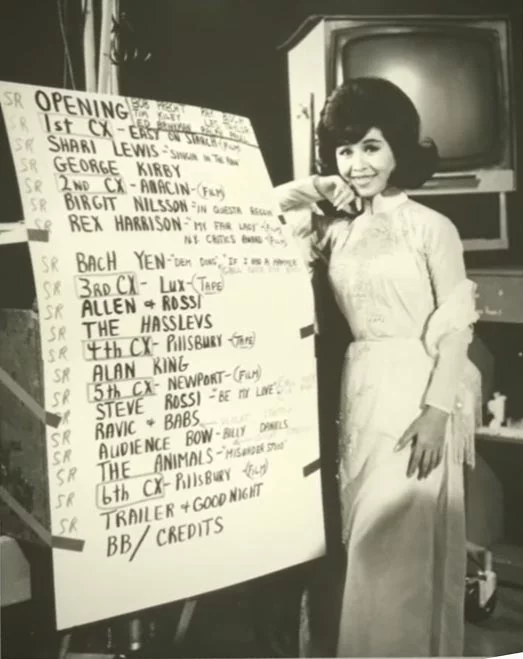 SR OPENING BOB PRECHT RAY BLOCH
TIM KILEY
ED
SR 1st CX - EAST ON STARCH (FILM)
SR SHARI LEWIS - "SINGIN IN THE RAIN"
SR GEORGE KIRBY
SR 2ND CX - ANACIN - (FILM)
SR BIRGIT NILSSON - "IN QUESTA REGGIA"
SR REX HARRISON - "MY FAIR LADY" - (FILM)
N.Y. CRITICS AWARD - (FILM)
SR BACH YEN - "DEM DING" "IF I HAD A HAMMER
SR 3RD CX - LUX - (TAPE)
SR ALLEN & ROSSI
SR THE HASSLEVS
SR 4th CX - PILLSBURY - (TAPE)
SR ALAN KING
SR 5th CX - NEWPORT - (FILM)
SR STEVE ROSSI - "BE MY LOVE"
SR RAVIC & BABS
SR AUDIENCE BOW - BILLY DANIELS
SR THE ANIMALS - "MISUNDERSTOOD"
SR 6th CX - PILLSBURY - (FILM)
SR TRAILER & GOOD NIGHT
BB/CREDITS